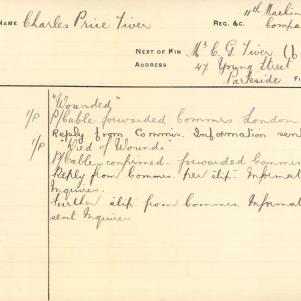 11th Machin
NAME Charles Price Tiver REG. &C. Compa
NEXT OF KIN Mrs C. G. Tiver (
ADDRESS 47 Young Street
Parkside F
"Wounded"
1/P P/Cable forwarded Commrs London
Reply from Commrs. Information sent
1/P "Died of Wounds"
P/Cable confirmed. forwarded Commrs
Reply from Commrs. per slip. Informat
Inquirer.
Further slip from Commrs Informat
sent Inquirer